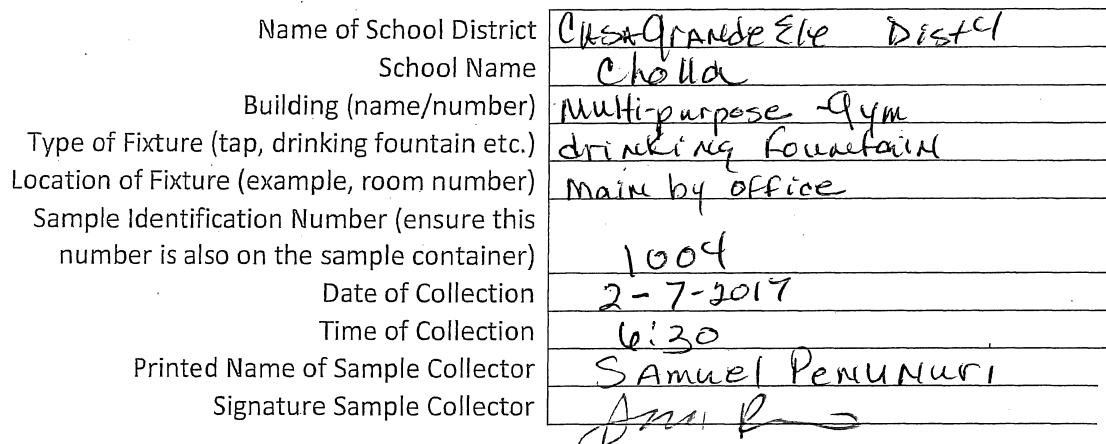 Name of School District CASA Grande Ele Dist 4
School Name Cholla
Building (name/number) Multi-purpose - Gym
Type of Fixture (tap, drinking fountain etc.) drinking fountain
Location of Fixture (example, room number) Main by office
Sample Identification Number (ensure this
number is also on the sample container) 1004
Date of Collection 2-7-2017
Time of Collection 6:30
Printed Name of Sample Collector Samuel Penunuri
Signature Sample Collector